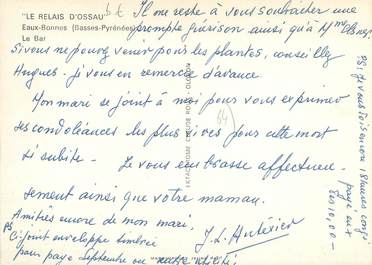 "LE RELAIS D'OSSAU"
Eaux-Bonnes (Basses-Pyrénées)
Le Bar
6 €
Il me reste à vous souhaiter une
prompte guérison ainsi qu'à Mme
Si vous ne pouvez venir pour les plantes, conseillez
Hugues - je vous en remercie d'avance.
Mon mari se joint à moi pour vous exprimer
ses condoléances les plus vives pour cette mort
si subite. Je vous embrasse affectueu-
sement ainsi que votre maman.
Amitiés encore de mon mari,
J.L. Antérieu
PS Ci-joint enveloppe timbrée
pour paye Septembre ou
64
EKTACHROME OLORON
PS: je vous